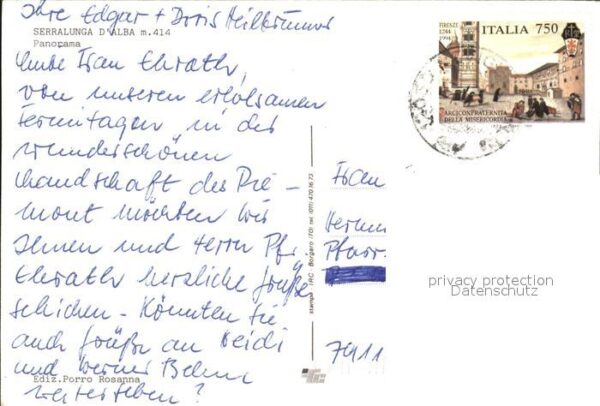 Ihre Edgar + Doris Heilbrunner
SERRALUNGA D'ALBA m.414
Panorama
Liebe Frau Ehrath,
von unseren erholsamen
Ferientagen in der
wunderschönen
Landschaft des Pie-
mont möchten wir
Ihnen und Herrn Pfr.
Ehrath herzliche Grüße
schicken - Könnten Sie
auch Grüße an Heidi
und Werner Behm
weitergeben?
Ediz.Porro Rosanna
stampa - IRC - Borgaro (TO) tel. (011) 470.16.73
FIRENZE
1244
1994
ITALIA 750
ARCICONFRATERNITA
DELLA MISERICORDIA
Frau
Pfarr-
7911
privacy protection
Datenschutz